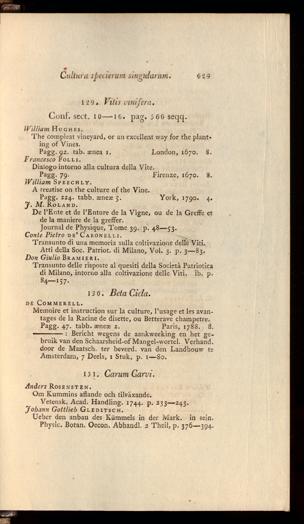 Cultura specierum singularum. 629
129. Vitis vinifera.
Conf. sect. 10—16. pag. 566 seqq.
William HUGHES.
The compleat vineyard, or an excellent way for the plant-
ing of Vines.
Pagg. 92. tab. ænea 1. London, 1670. 8.
Francesco FOLLI.
Dialogo intorno alla cultura della Vite.
Pagg. 79. Firenze, 1670. 8.
William SPEECHLY.
A treatise on the culture of the Vine.
Pagg. 224. tabb. æneæ 5. York, 1790. 4.
J. M. ROLAND.
De l'Ente et de l'Enture de la Vigne, ou de la Greffe et
de la maniere de la greffer.
Journal de Physique, Tome 39. p. 48—53.
Conte Pietro DE' CARONELLI.
Transunto di una memoria sulla coltivazione delle Viti.
Atti della Soc. Patriot. di Milano, Vol. 3. p. 3—83.
Don Giulio BRAMIERI.
Transunto delle risposte al quesiti della Società Patriotica
di Milano, intorno alla coltivazione delle Viti. ib. p.
84—157.
130. Beta Cicla.
DE COMMERELL.
Memoire et instruction sur la culture, l'usage et les avan-
tages de la Racine de disette, ou Betterave champetre.
Pagg. 47. tabb. æneæ 2. Paris, 1788. 8.
———: Bericht wegens de aankweeking en het ge-
bruik van den Schaarsheid-of Mangel-wortel. Verhand.
door de Maatsch. ter beverd. van den Landbouw te
Amsterdam, 7 Deels, 1 Stuk, p. 1—80.
131. Carum Carvi.
Anders ROSENSTEN.
Om Kummins aflande och tilväxande.
Vetensk. Acad. Handling. 1744. p. 233—243.
Johann Gottlieb GLEDITSCH.
Ueber den anbau des Kümmels in der Mark. in sein.
Physic. Botan. Oecon. Abhandl. 2 Theil, p. 376—394.